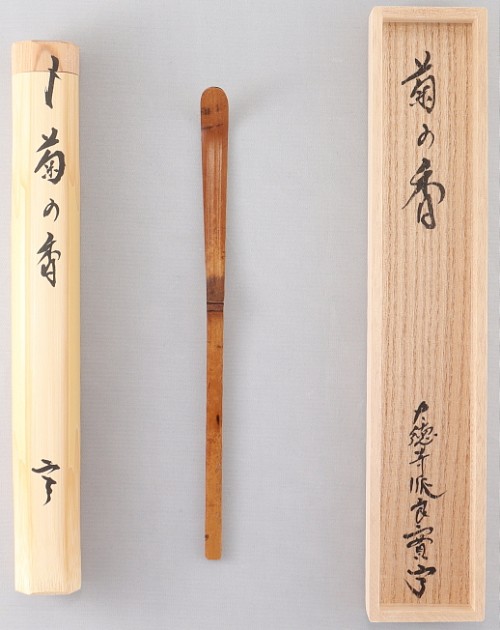 菊の香
大徳寺派良實
菊の香